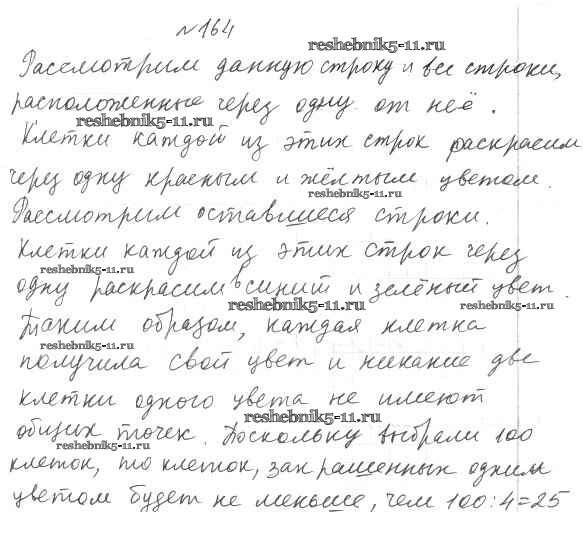 №164
reshebnik5-11.ru
Рассмотрим данную строку и все строки,
расположенные через одну от неё.
reshebnik5-11.ru
Клетки каждой из этих строк раскрасим
через одну красным и жёлтым цветом.
reshebnik5-11.ru
Рассмотрим оставшиеся строки.
Клетки каждой из этих строк через
reshebnik5-11.ru
одну раскрасим в синий и зелёный цвет.
reshebnik5-11.ru
reshebnik5-11.ru
Таким образом, каждая клетка
reshebnik5-11.ru
получила свой цвет и никакие две
клетки одного цвета не имеют
reshebnik5-11.ru
общих точек. Поскольку выбрали 100
reshebnik5-11.ru
клеток, то клеток, закрашенных одним
цветом будет не меньше, чем 100:4=25